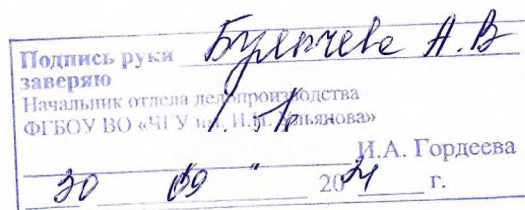 Подпись руки Булычева А.В
заверяю
Начальник отдела делопроизводства
ФГБОУ ВО «ЧГУ им. И.Н. Ульянова»
И.А. Гордеева
30 09 " 2024 г.